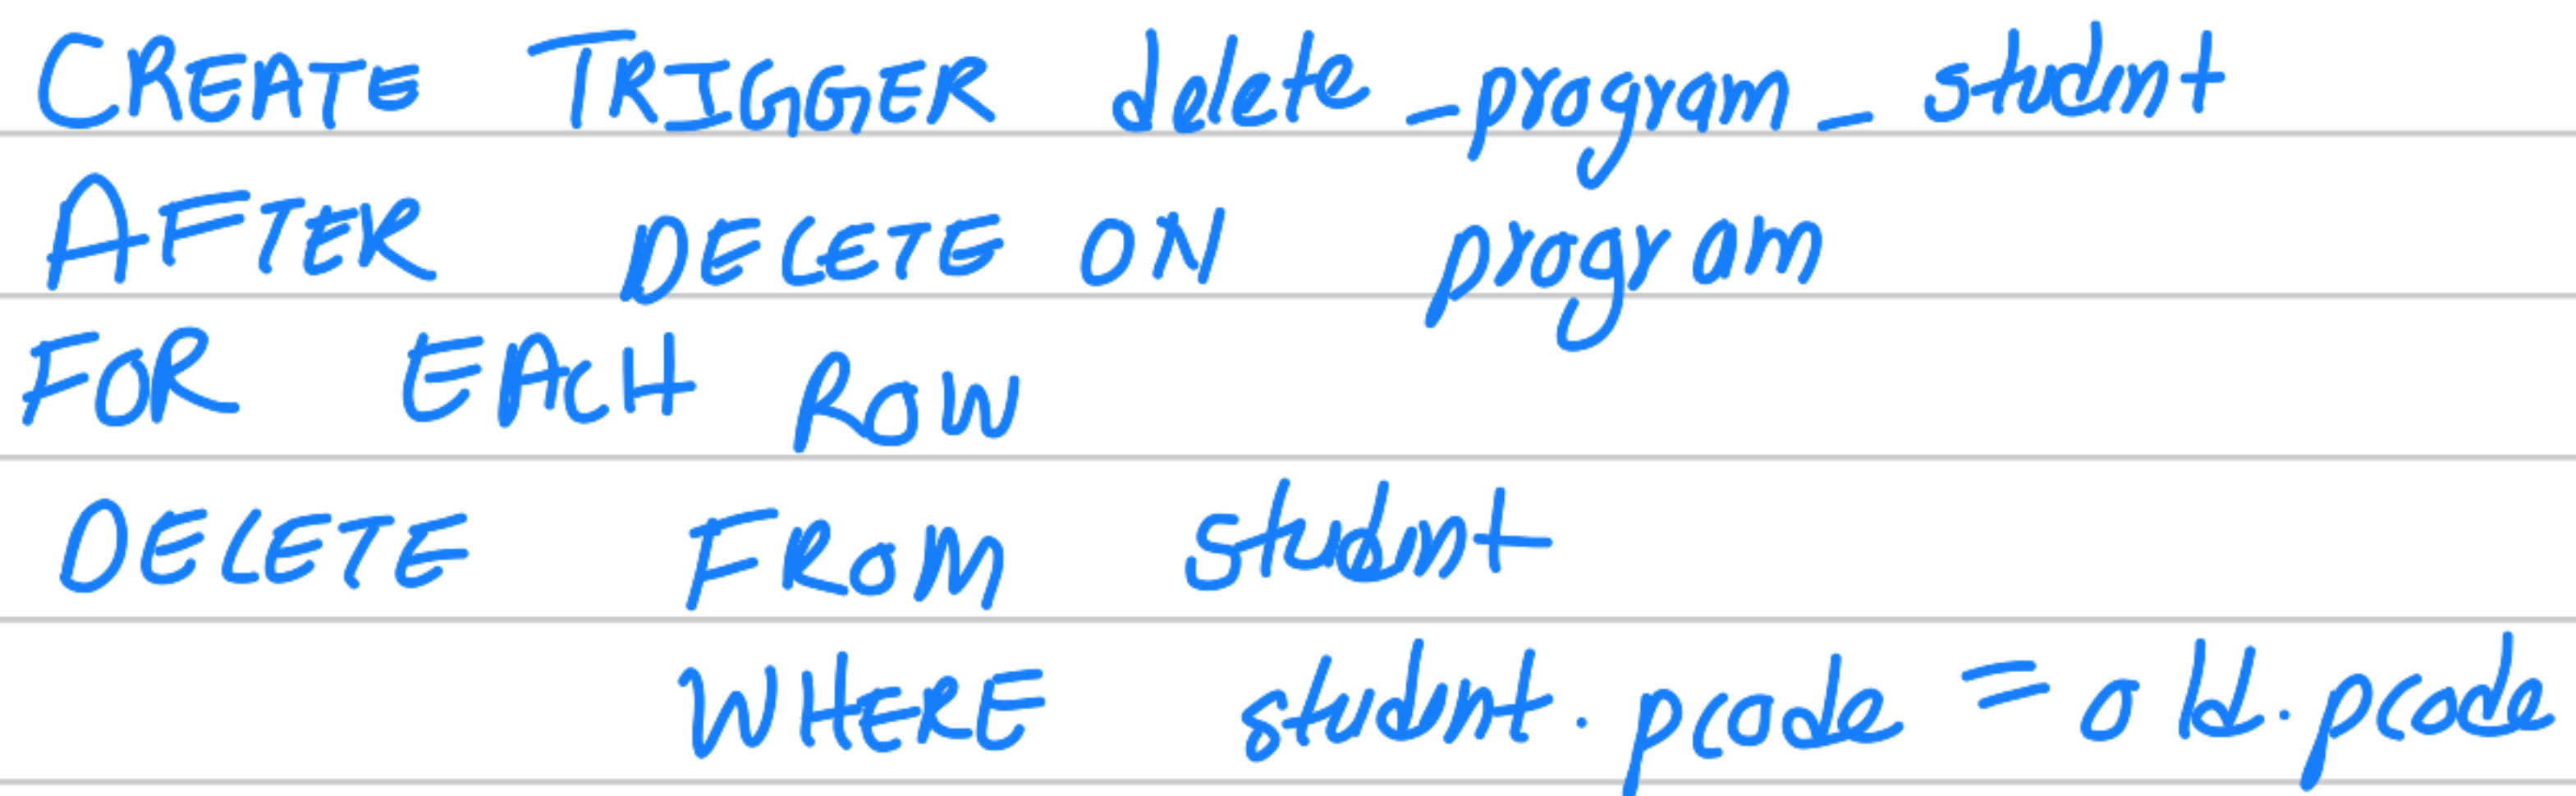 CREATE TRIGGER delete_program_student
AFTER DELETE ON program
FOR EACH ROW
DELETE FROM student
WHERE student.pcode = old.pcode